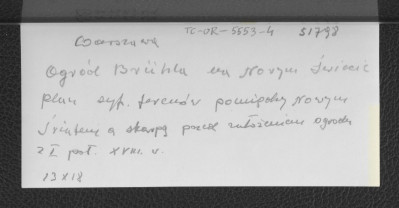 TC-OR-5553-4 51798
Warszawa
Ogród Brühla na Nowym Świecie
plan syt. terenów pomiędzy Nowym
Światem a skarpą przed założeniem ogrodu
z I poł. XVIII w.
13 x 18